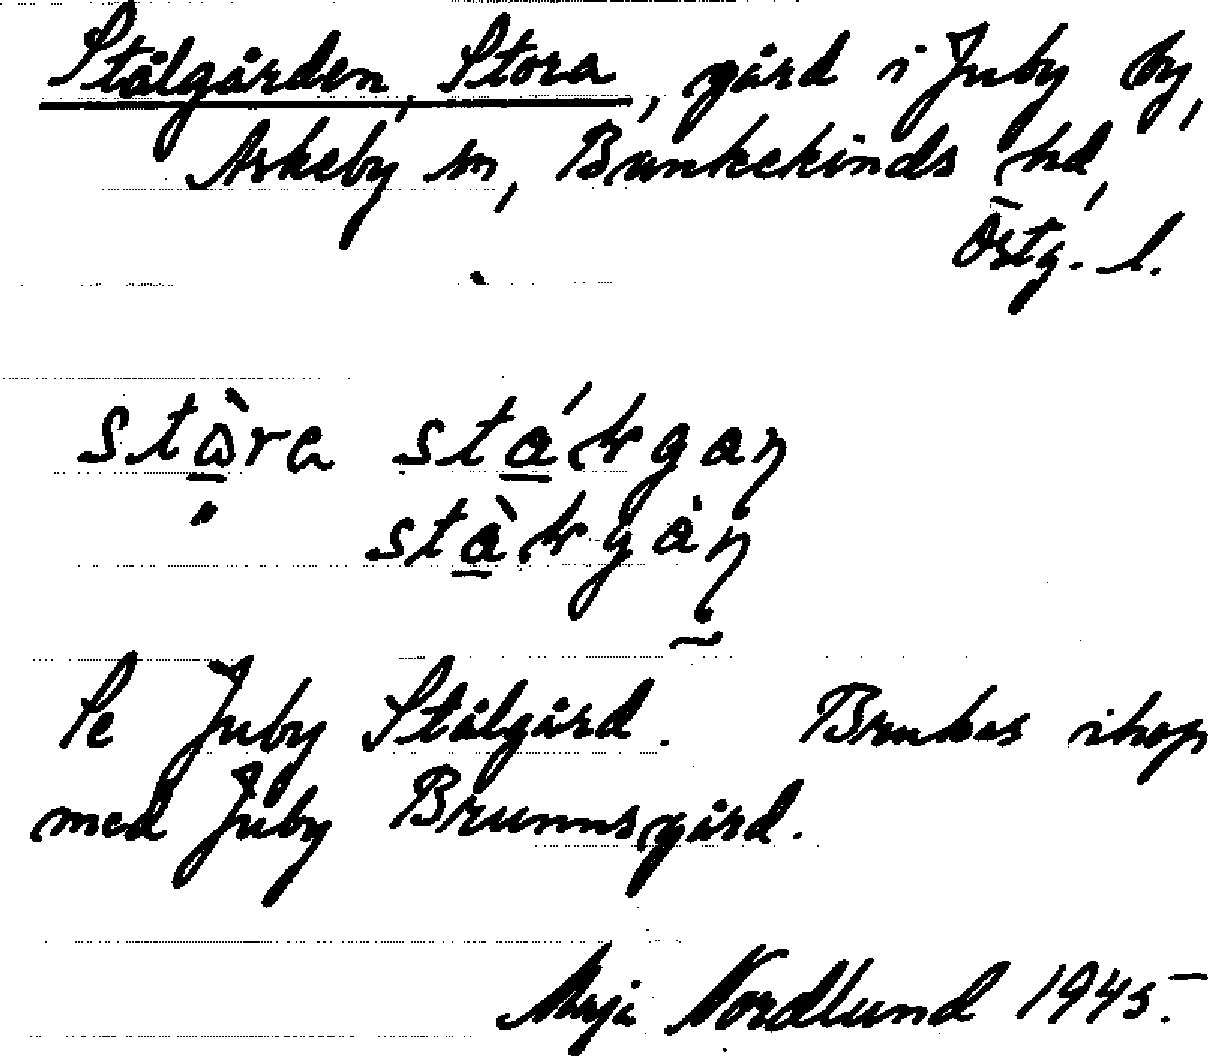 Stålgården, Stora, gård i Juby by,
Askeby sn, Bankekinds hd,
Östg. l.
Se Juby Stålgård. Brukas ihop
med Juby Brunnsgård.
Nordlund 1945.